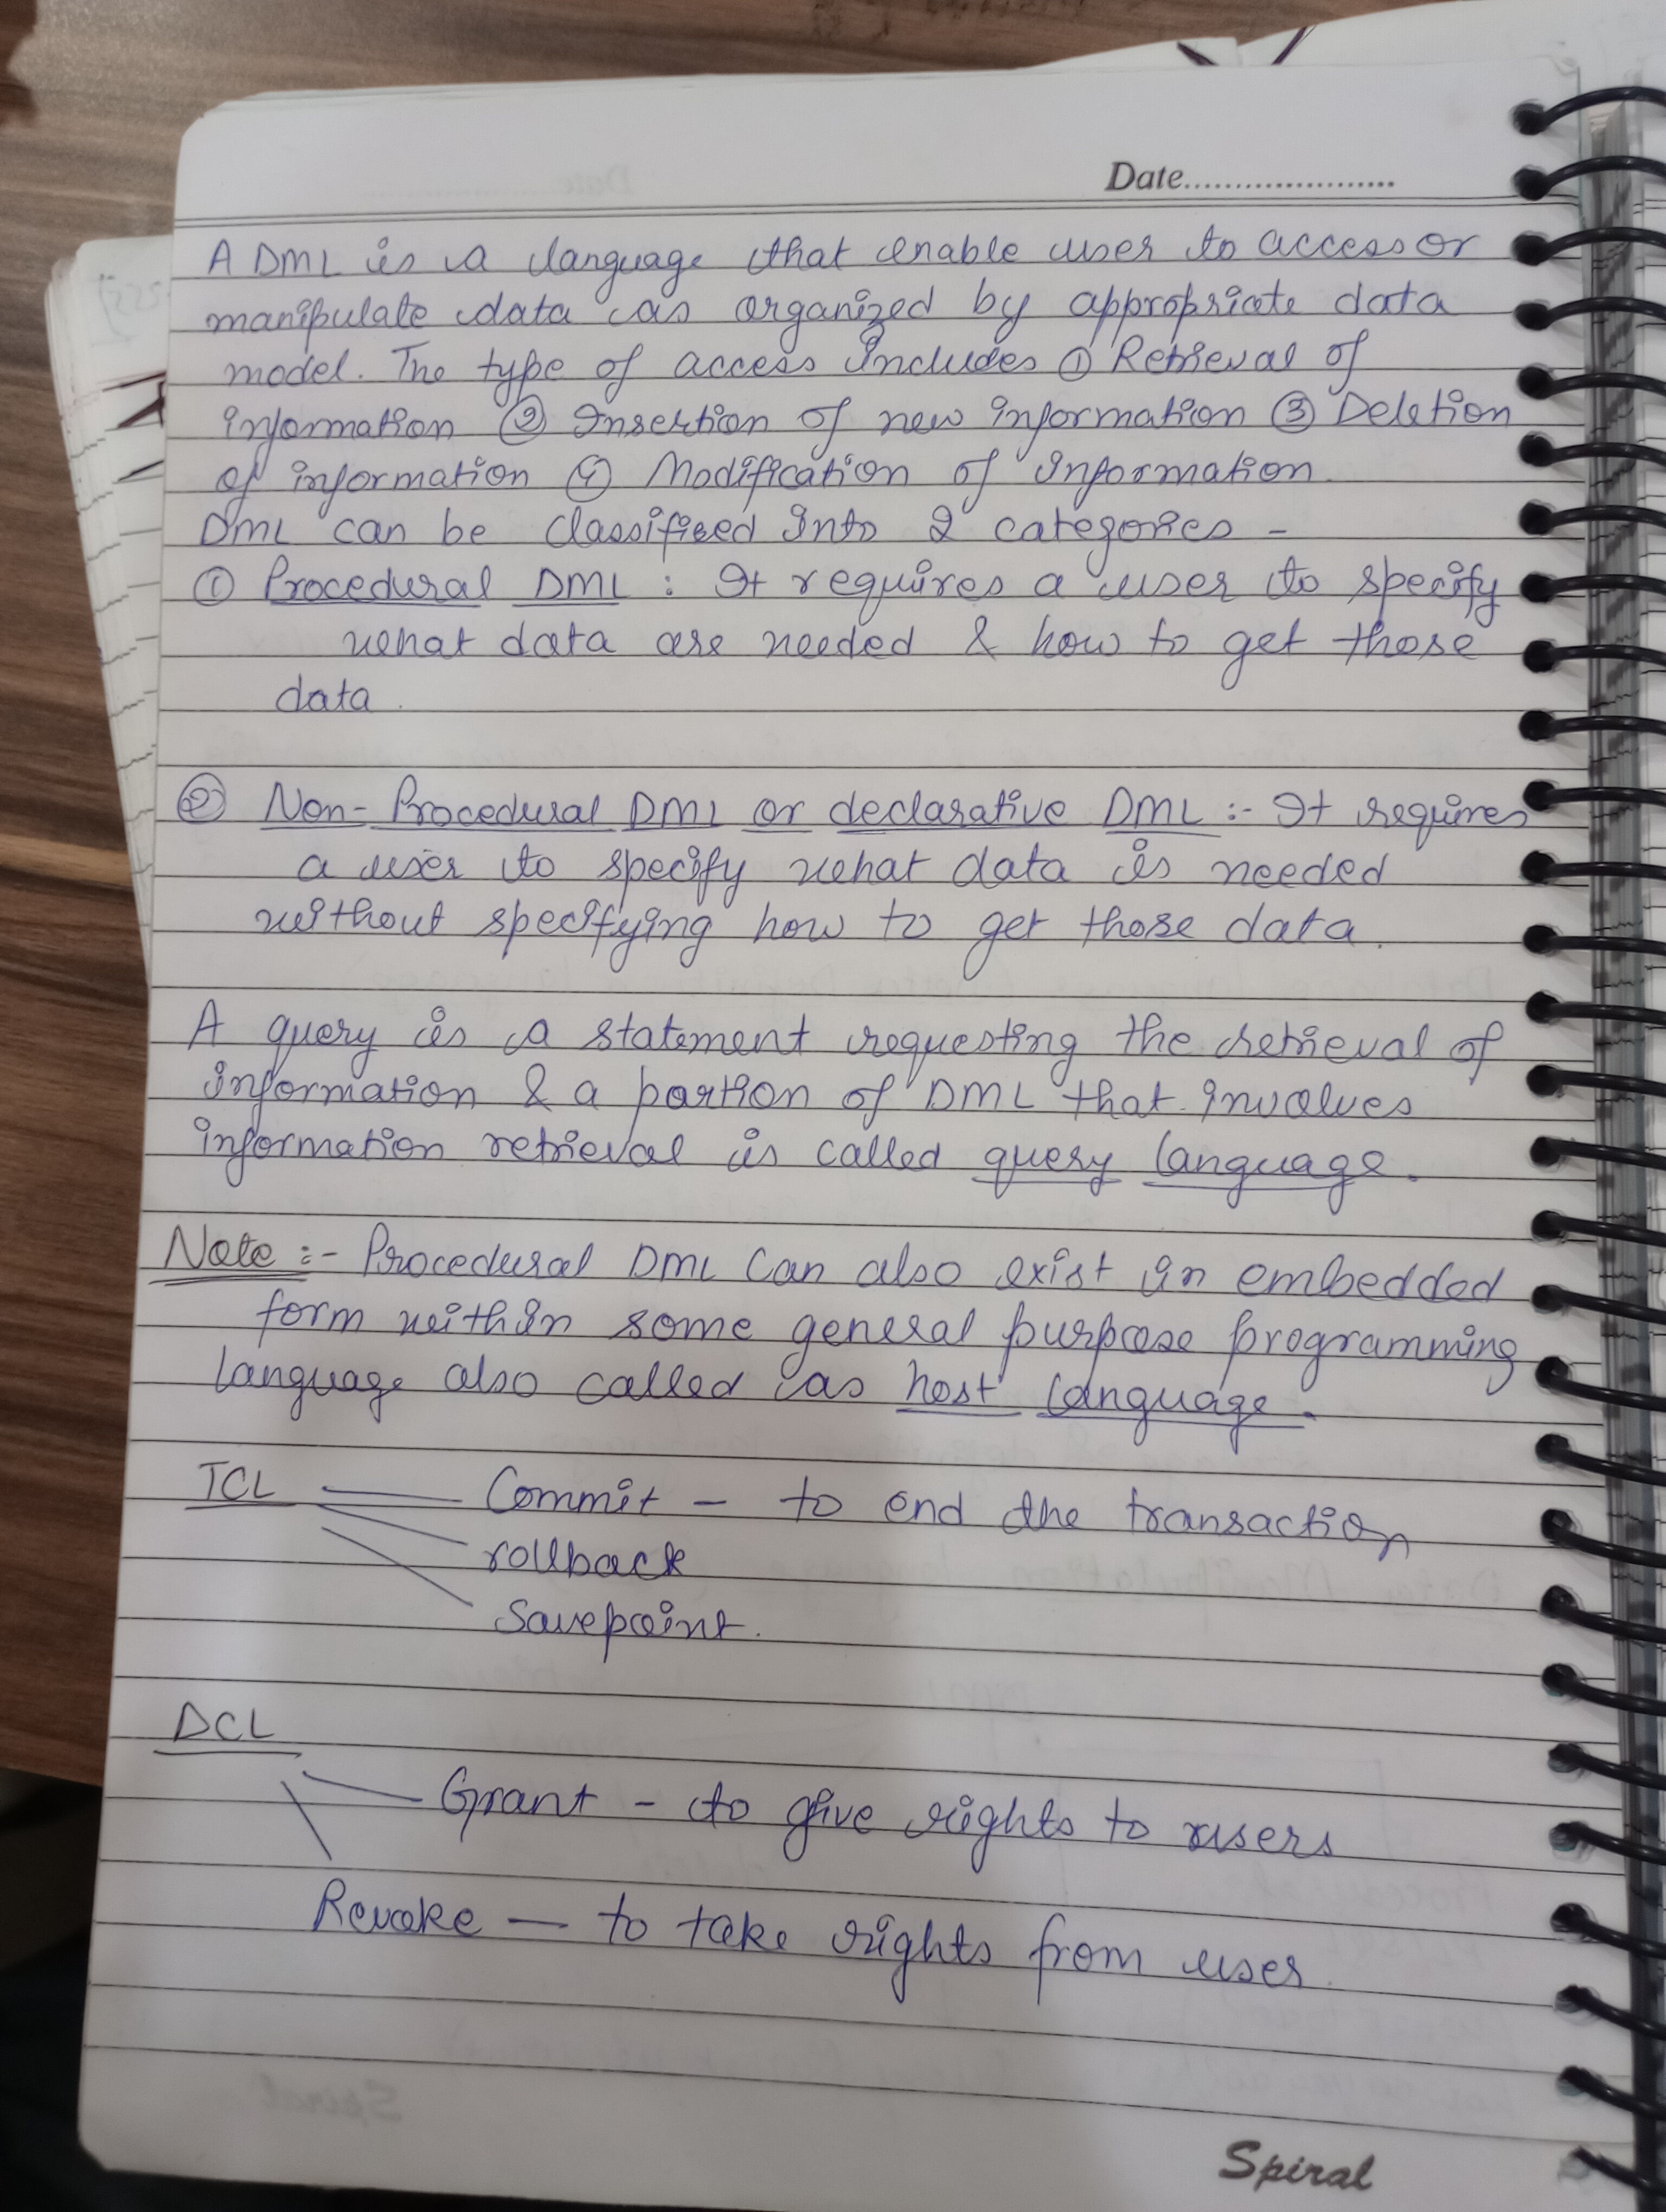 Date.....................
A DML is a language that enable user to access or
manipulate data as organized by appropriate data
model. The type of access includes ① Retrieval of
information ② Insertion of new information ③ Deletion
of information ④ Modification of information
DML can be classified into 2 categories -
① Procedural DML : It requires a user to specify
what data are needed & how to get those
data.
② Non-Procedural DML or declarative DML :- It requires
a user to specify what data is needed
without specifying how to get those data.
A query is a statement requesting the retrieval of
information & a portion of DML that involves
information retrieval is called query language.
Note :- Procedural DML can also exist in embedded
form within some general purpose programming
language also called as host language.
TCL Commit - to end the transaction
rollback
Savepoint.
DCL
Grant - to give rights to users
Revoke - to take rights from user.
Spiral